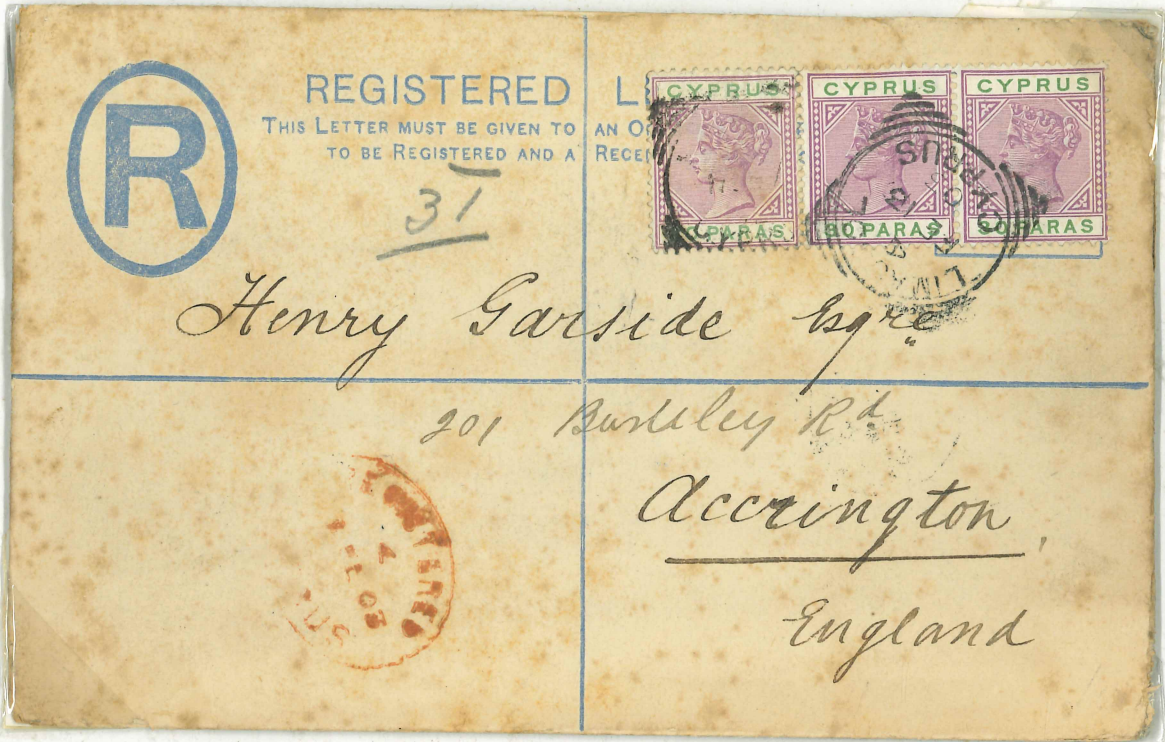 R
REGISTERED L
THIS LETTER MUST BE GIVEN TO AN O
TO BE REGISTERED AND A RECE
31
CYPRUS CYPRUS CYPRUS
PARAS 30 PARAS 30 PARAS
CYPRUS
LIM
Henry Garside Esqre
201 Burnley Rd
Accrington
England
03